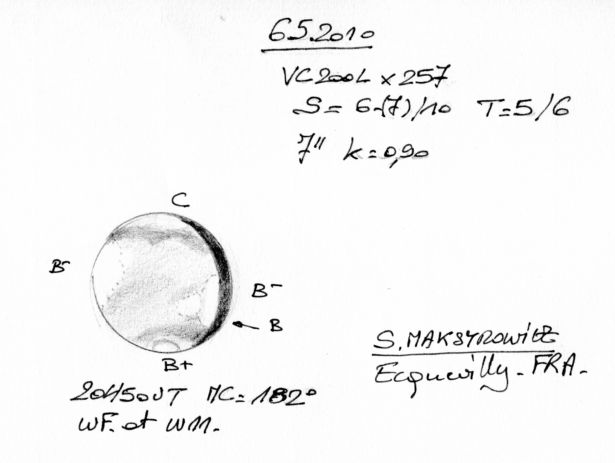 6.5.2010
VC200L x 257
S= 6-(7)/10 T=5/6
7" k=0,90
C
B-
B-
B
B+
20h50UT MC=182°
WF. et W11.
S. MAKSYMOWICZ
Ecquevilly - FRA.